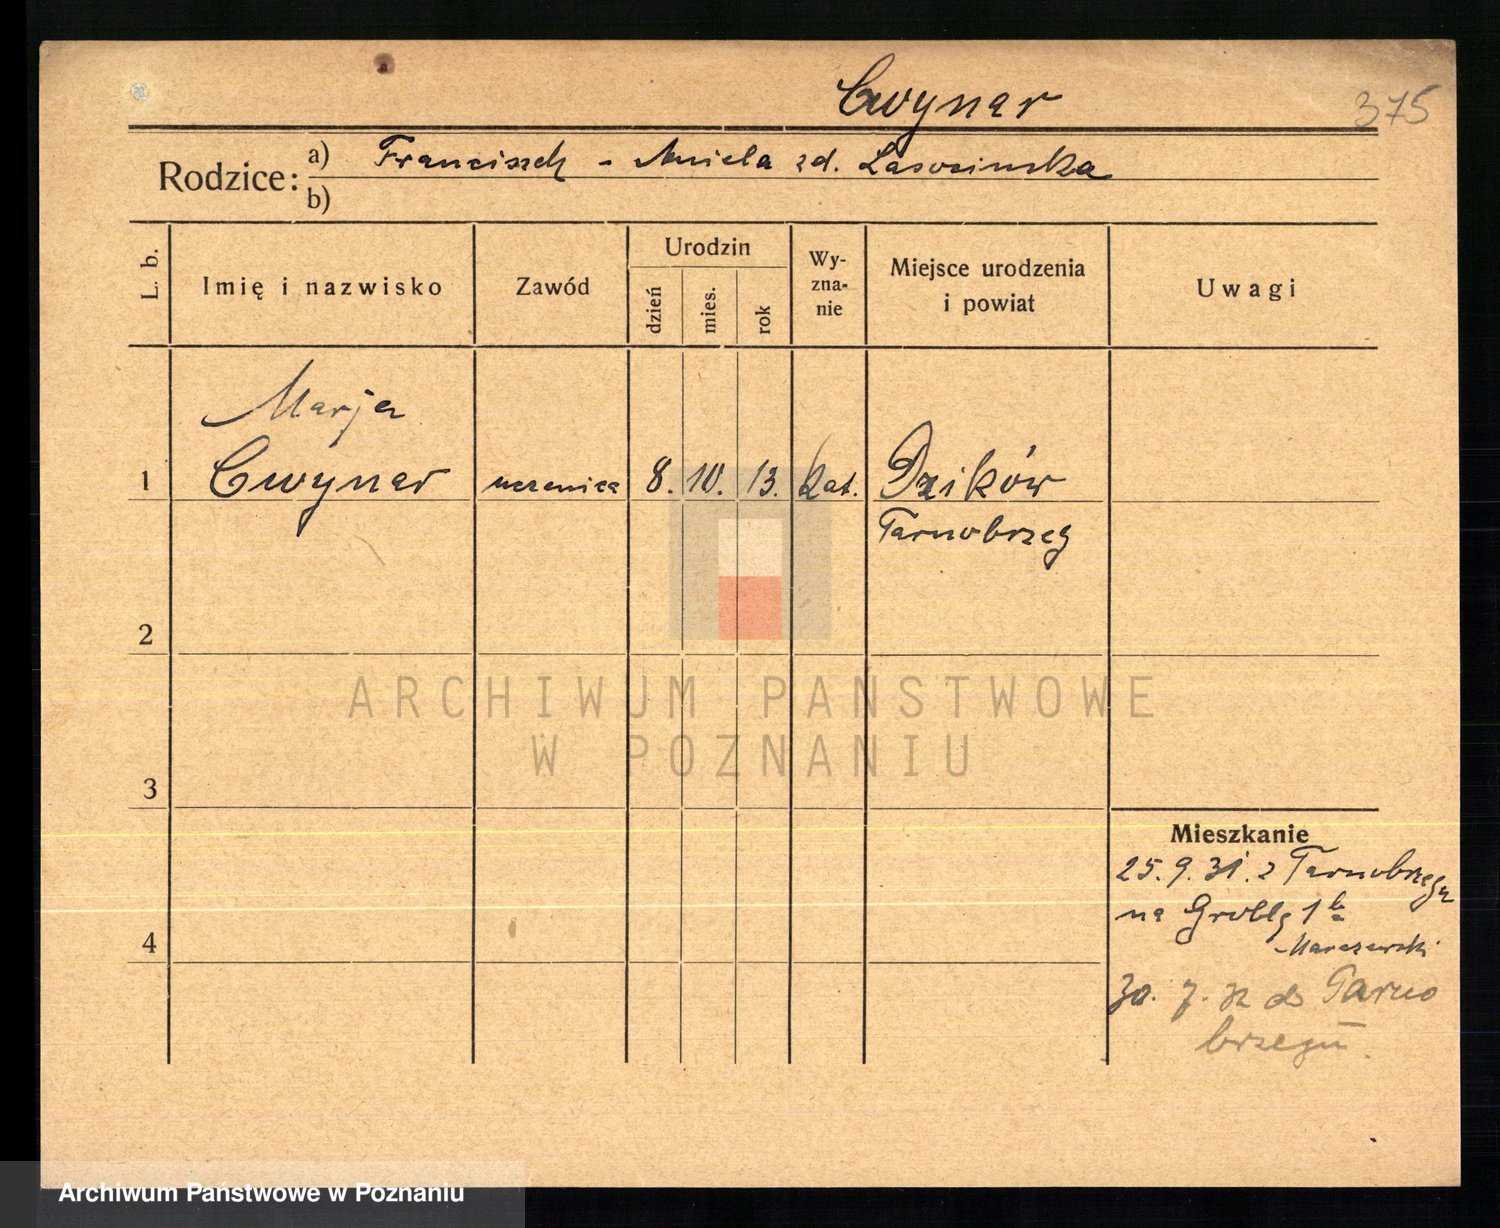 Cwynar
375
Rodzice: a) Franciszek - Aniela zd. Lasocinska
b)
L. b.
Imię i nazwisko
Zawód
Urodzin
dzień
mies.
rok
Wy-
zna-
nie
Miejsce urodzenia
i powiat
Uwagi
Marja
1 Cwynar uczenica 8. 10. 13. kat. Dzików
Tarnobrzeg
2
ARCHIWUM PAŃSTWOWE
W POZNANIU
3
Mieszkanie
25. 9. 31. z Tarnobrzegu
na Groblę 1
4
Marszewski
30. 7. 32 do Tarno
brzegu
Archiwum Państwowe w Poznaniu